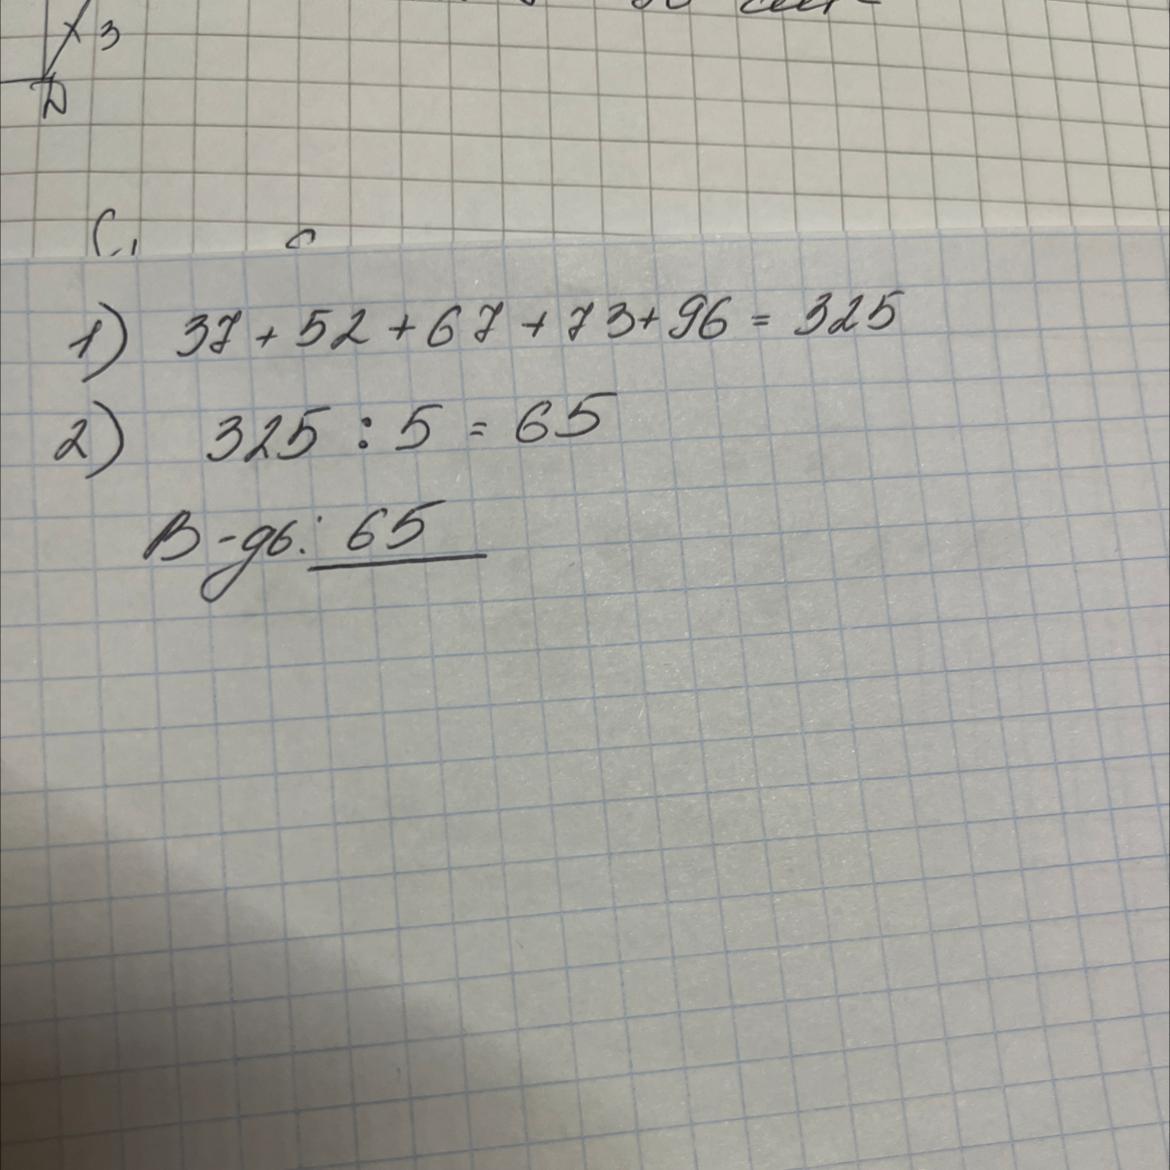 3
D
1) 37 + 52 + 67 + 73 + 96 = 325
2) 325 : 5 = 65
В-дь: 65